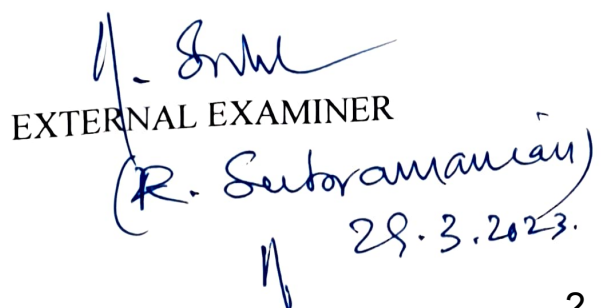 EXTERNAL EXAMINER
(R. Subramanian)
29.3.2023.
2